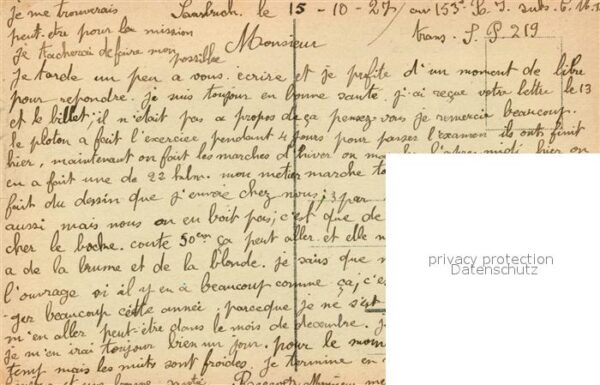 je me trouverais
peut-etre pour la mission
je tacherai de faire mon
possible
le 15 - 10 - 27
au 153e R. I.
trans. S. P. 219
Monsieur
je tarde un peu a vous ecrire et je profite d'un moment de libre
pour repondre. je suis toujour en bonne santé. j'ai reçue votre lettre le 13
et le billet, il n'était pas a propos de ça pensez-vous je remercie beaucoup.
le ploton a fait l'exercice pendant 4 jours pour passer l'examen ils ont finit
hier, maintenant on fait les marches d'hiver on hier on
en a fait une de 22 klm. mon metier marche
fait du dessin que j'envoie chez nous, 3 par
aussi mais nous on en boit pas, c'est que de
cher le boche. coute 50cm ça peut aller. et elle
a de la brume et de la blonde. je sais que
l'ouvrage si il y en a beaucoup comme ça, c'es
ger beaucoup cette année, parceque je ne s'est
m'en aller peut-etre dans le mois de decembre. j
je m'en irai toujour bien un jour. pour le mom
temp mais les nuits sont froides. je termine en
privacy protection
Datenschutz